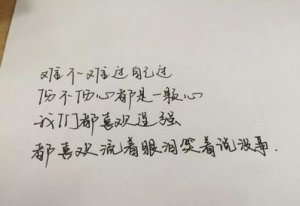 难不难过自己过
伤不伤心都是一颗心
我们都喜欢逞强
都喜欢流着眼泪笑着说没事.